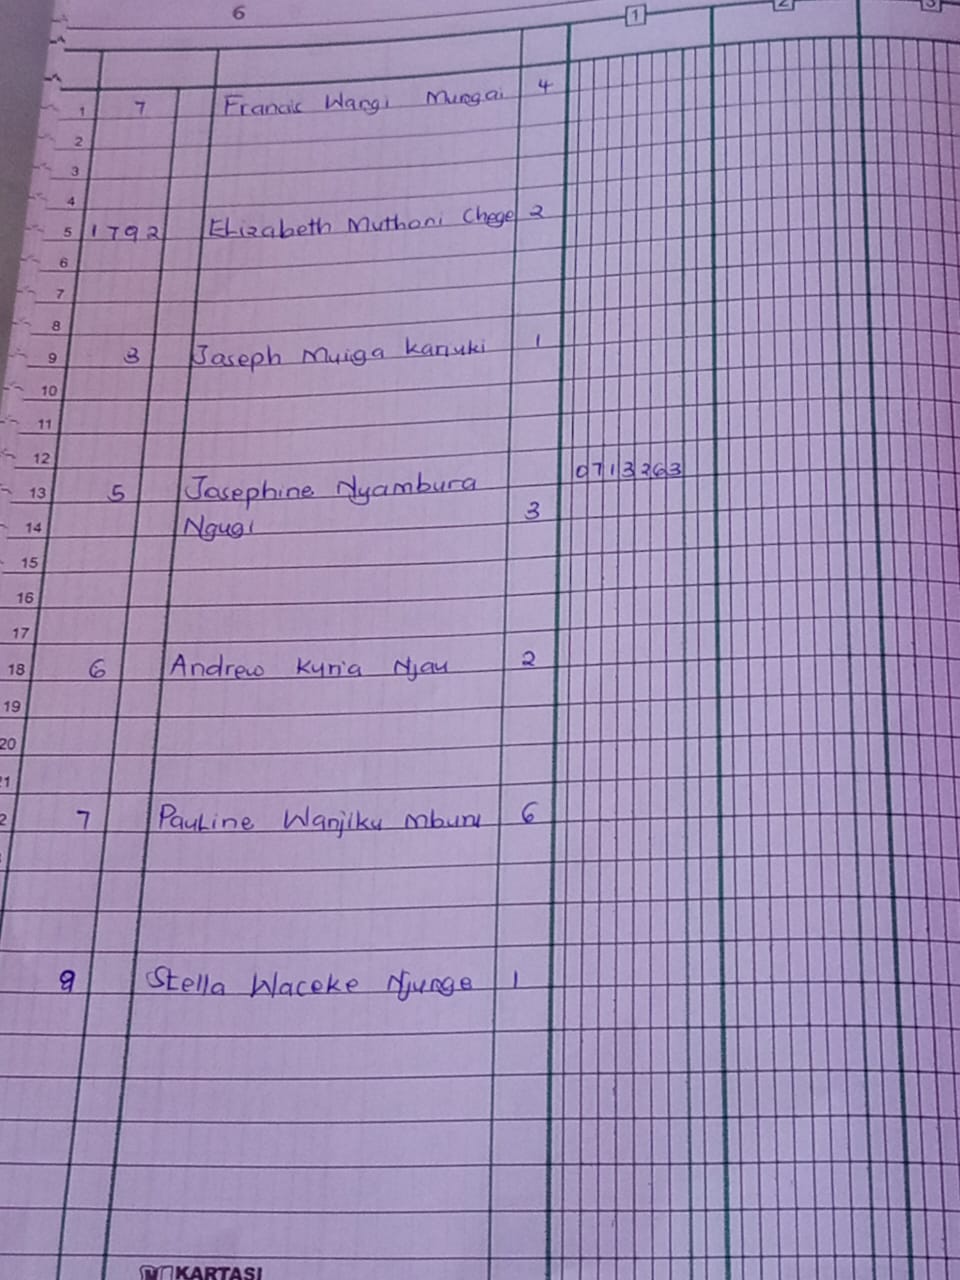 6
1 2 3
1 7 Francis Wargi Mungai 4
2
3
4
5 1792 Elizabeth Muthoni Chege 2
6
7
8
9 3 Joseph Muiga Kariuki 1
10
11
12
0713263
13 5 Josephine Nyambura
14 Ngugi 3
15
16
17
18 6 Andrew Kuria Njau 2
19
20
21
2 7 Pauline Wanjiku Mburu 6
9 Stella Waceke Njunge 1
KARTASI